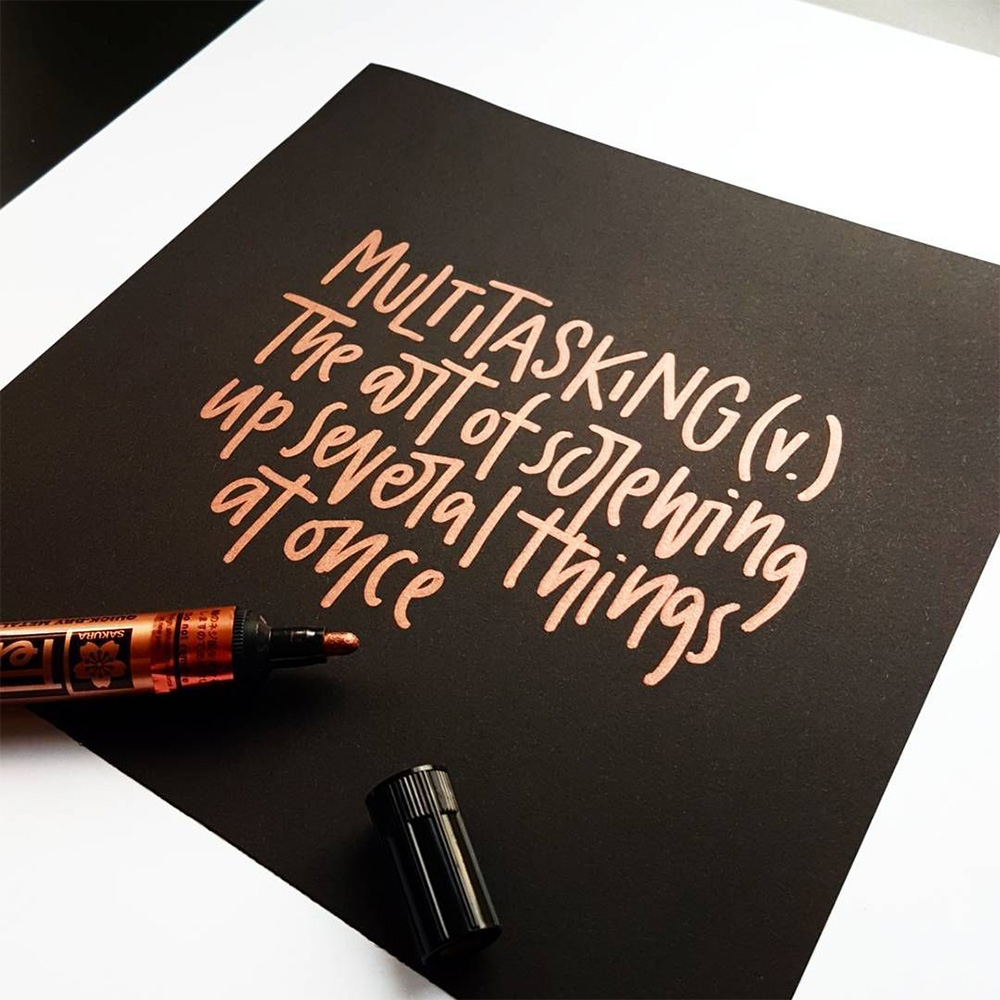 MULTITASKING (v.)
The art of screwing
up several things
at once
SAKURA
QUICK-DRY METAL